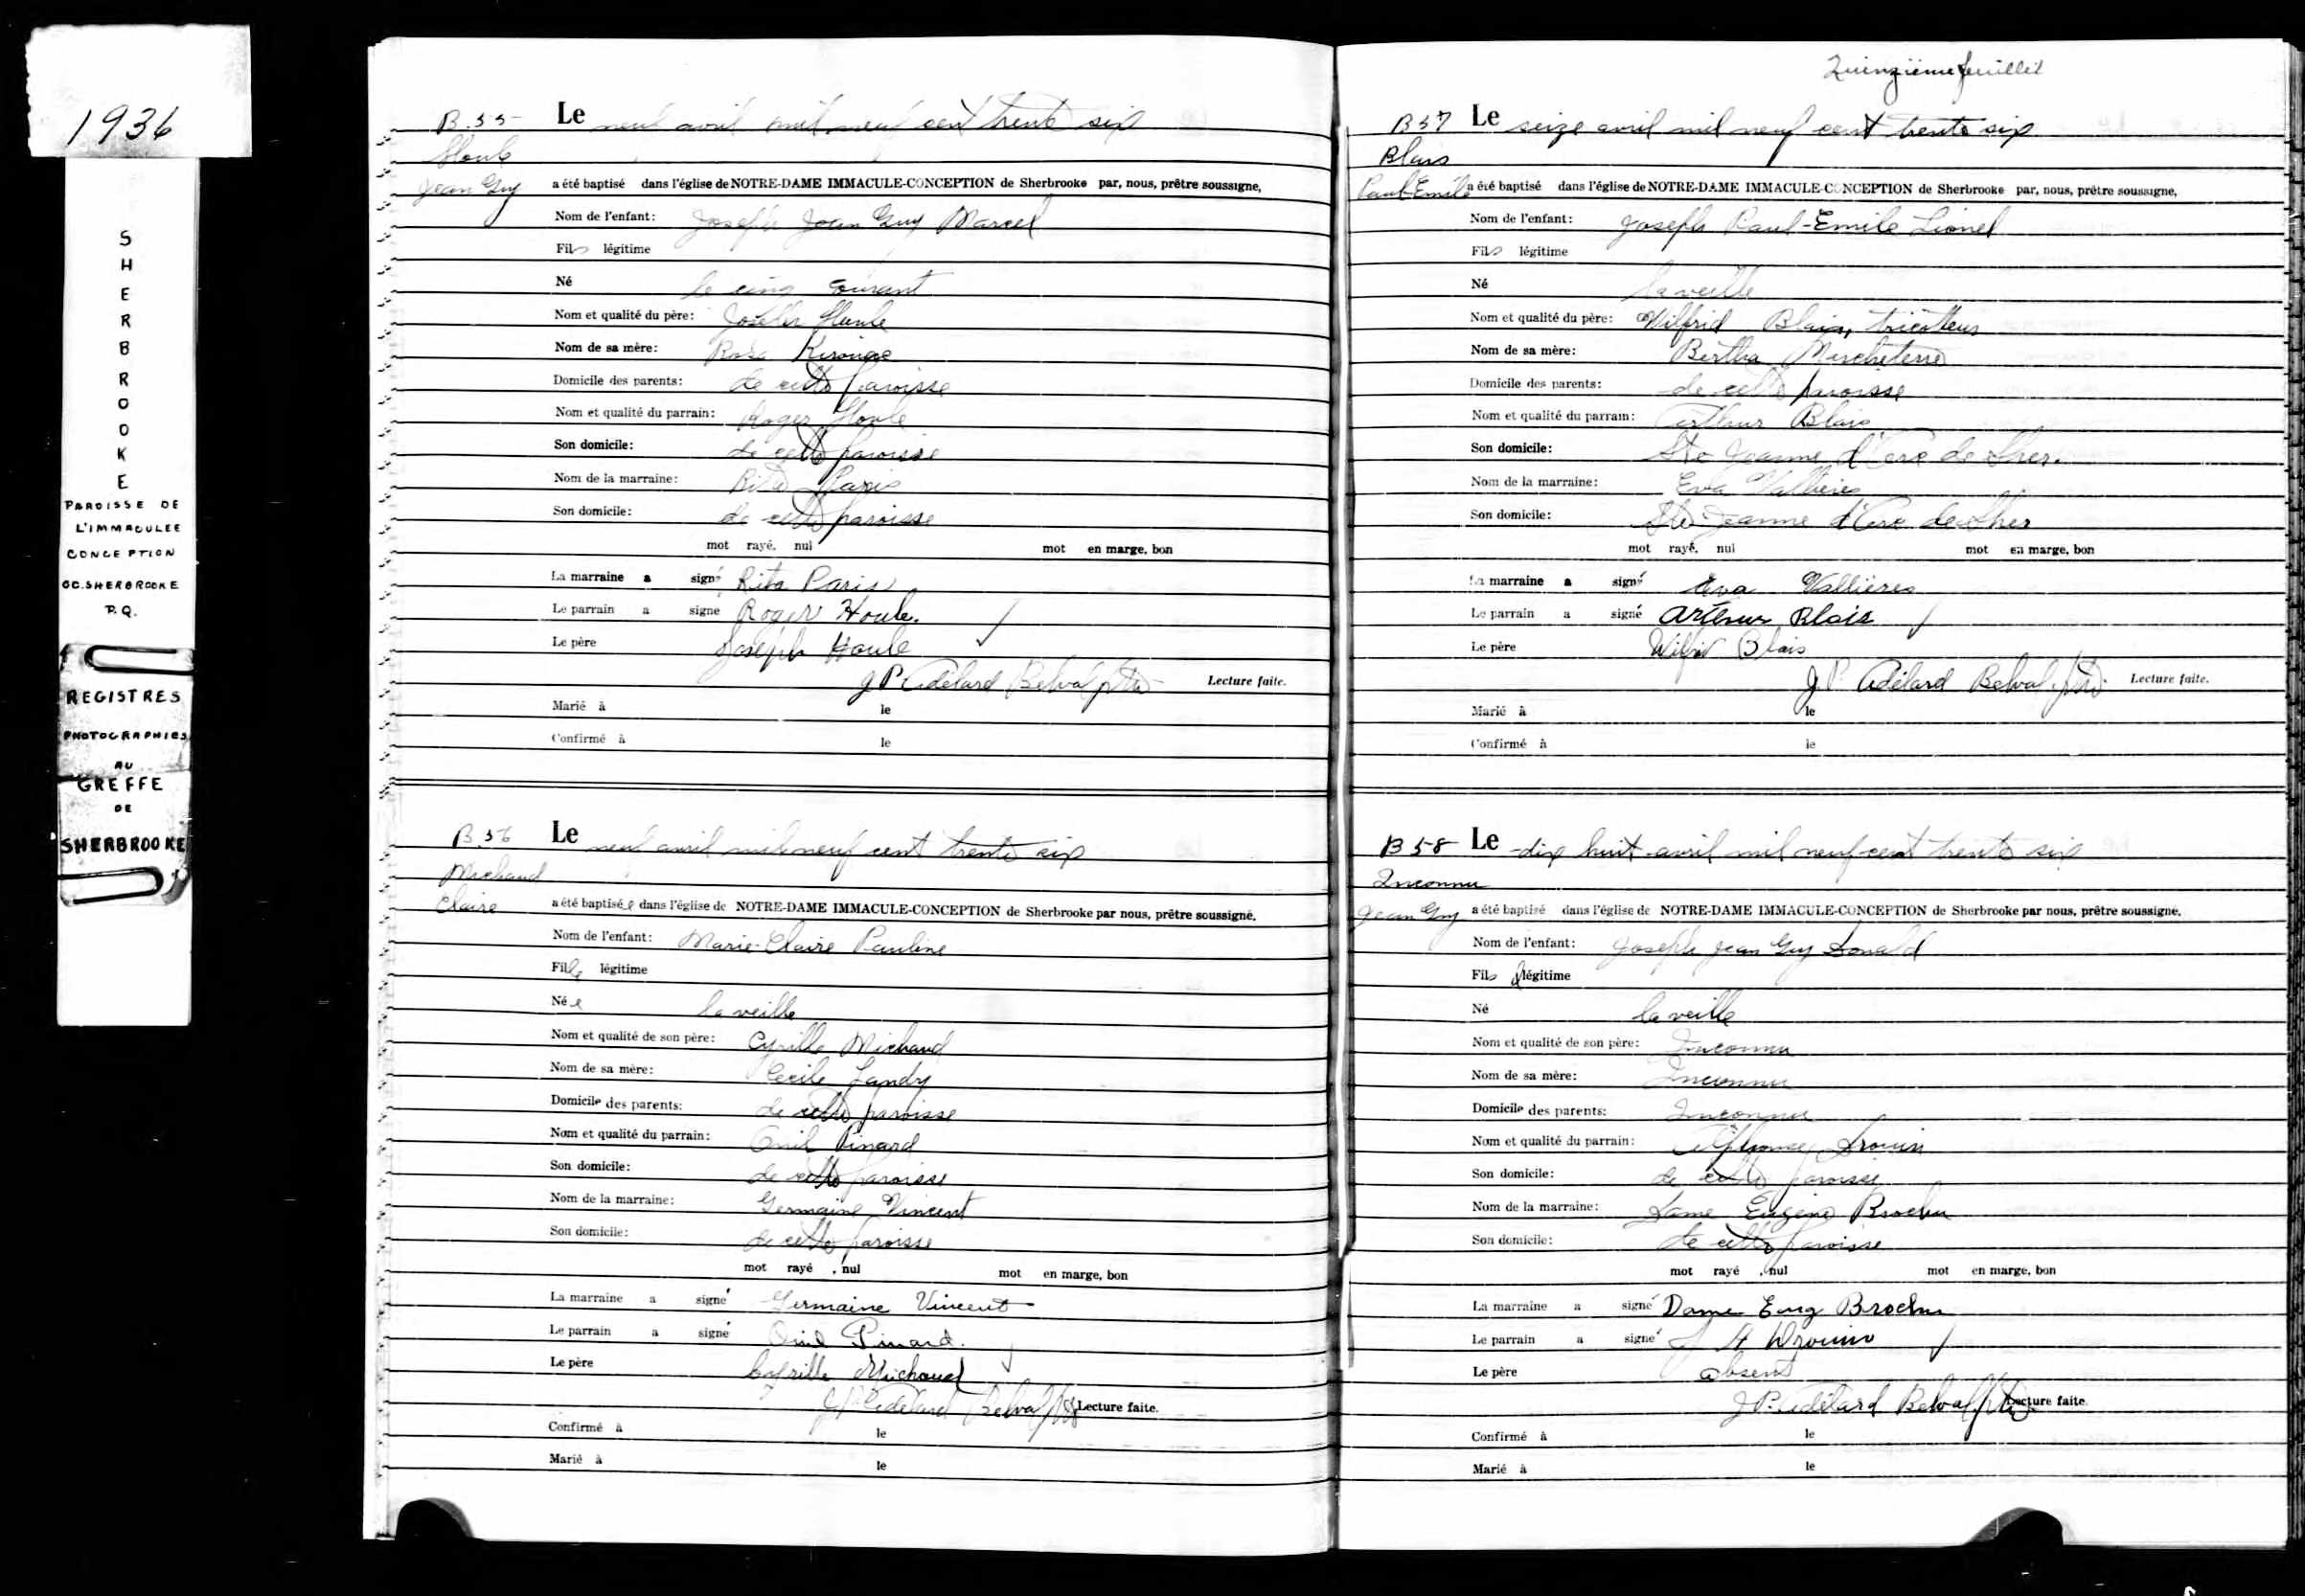 1936
SHERBROOKE
PAROISSE DE
L'IMMACULEE
CONCEPTION
CC. SHERBROOKE
P.Q.
REGISTRES
PHOTOGRAPHIES
AU
GREFFE
DE
SHERBROOKE
B. 55 Le neuf avril mil neuf cent trente six
Houle
Jean Guy a été baptisé dans l'église de NOTRE-DAME IMMACULE-CONCEPTION de Sherbrooke par, nous, prêtre soussigne,
Nom de l'enfant: Joseph Jean Guy Marcel
Fils légitime
Né le cinq courant
Nom et qualité du père: Joseph Houle
Nom de sa mère: Rosa
Domicile des parents: de cette paroisse
Nom et qualité du parrain: Roger Houle
Son domicile: de cette paroisse
Nom de la marraine: Rita Paris
Son domicile: de cette paroisse
mot rayé, nul mot en marge, bon
La marraine a signé Rita Paris
Le parrain a signe Roger Houle.
Le père Joseph Houle
J P Adélard Belval ptre Lecture faite.
Marié à le
Confirmé à le
B. 56 Le neuf avril mil neuf cent trente six
Michaud
Claire a été baptisée dans l'église de NOTRE-DAME IMMACULE-CONCEPTION de Sherbrooke par nous, prêtre soussigné,
Nom de l'enfant: Marie-Claire Pauline
Fille légitime
Née la veille
Nom et qualité de son père: Cyrille Michaud
Nom de sa mère: Cecile Landry
Domicile des parents: de cette paroisse
Nom et qualité du parrain: Pinard
Son domicile: de cette paroisse
Nom de la marraine: Germaine Vincent
Son domicile: de cette paroisse
mot rayé , nul mot en marge, bon
La marraine a signé Germaine Vincent
Le parrain a signé Pinard.
Le père Cyrille Michaud
J P Adélard Belval ptre Lecture faite.
Confirmé à le
Marié à le
Quinzième feuillet
B 57 Le seize avril mil neuf cent trente six
Blais
Paul-Emile a été baptisé dans l'église de NOTRE-DAME IMMACULE-CONCEPTION de Sherbrooke par, nous, prêtre soussigne,
Nom de l'enfant: Joseph Paul-Emile Lionel
Fils légitime
Né la veille
Nom et qualité du père: Wilfrid Blais, tricotteur
Nom de sa mère: Bertha Marcheterre
Domicile des parents: de cette paroisse
Nom et qualité du parrain: Arthur Blais
Son domicile: Ste Jeanne d'Arc de Sher.
Nom de la marraine: Eva Vallières
Son domicile: Ste Jeanne d'Arc de Sher
mot rayé, nul mot en marge, bon
La marraine a signé Eva Vallières
Le parrain a signé Arthur Blais
Le père Wilfrid Blais
J P Adélard Belval ptre. Lecture faite.
Marié à le
Confirmé à le
B 58 Le dix huit avril mil neuf cent trente six
Inconnu
Jean Guy a été baptisé dans l'église de NOTRE-DAME IMMACULE-CONCEPTION de Sherbrooke par nous, prêtre soussigné,
Nom de l'enfant: Joseph Jean Guy Donald
Fils illégitime
Né la veille
Nom et qualité de son père: Inconnu
Nom de sa mère: Inconnu
Domicile des parents: Inconnu
Nom et qualité du parrain: Alphonse Drouin
Son domicile: de cette paroisse
Nom de la marraine: Dame Eugène Brochu
Son domicile: de cette paroisse
mot rayé , nul mot en marge, bon
La marraine a signé Dame Eug Brochu
Le parrain a signé A Drouin
Le père absent
J P. Adélard Belval ptre Lecture faite.
Confirmé à le
Marié à le